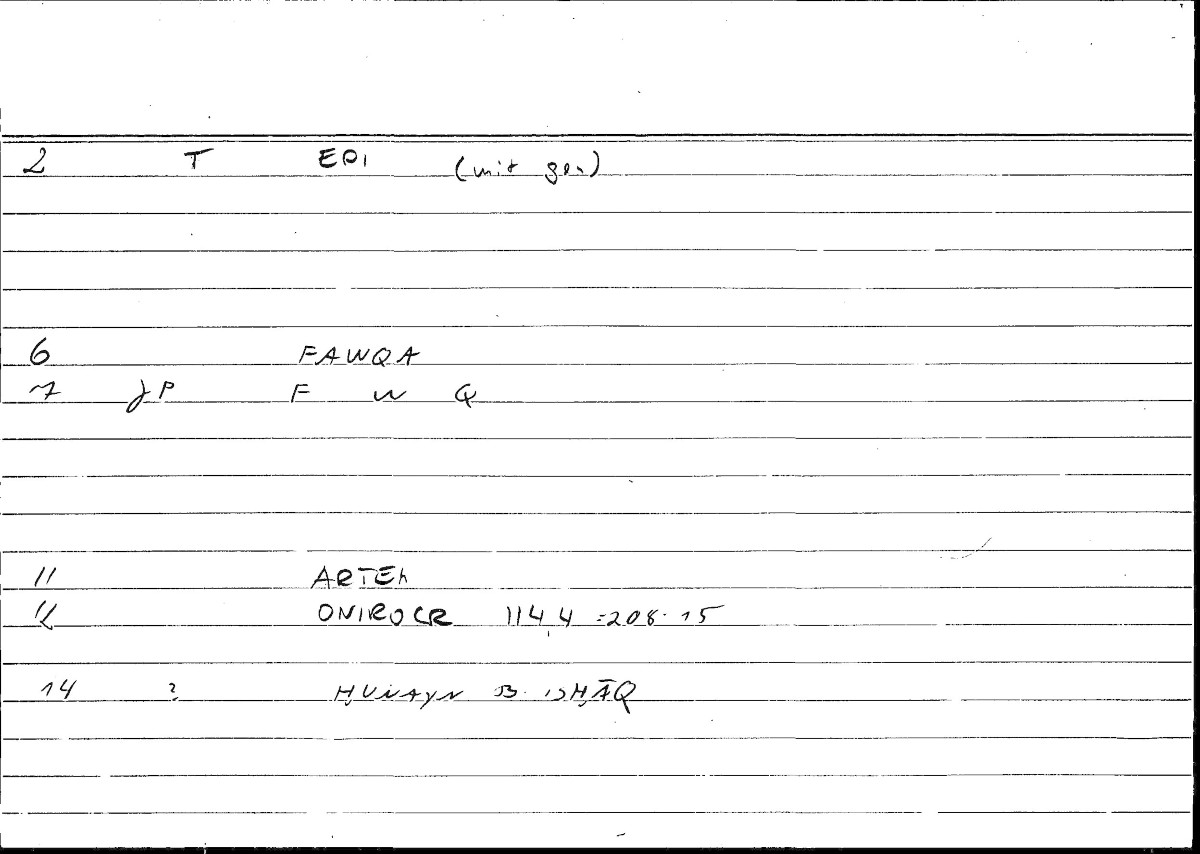 2 T EPI (mit gen)
6 FAWQA
7 JP F W Q
11 ARTEM
12 ONIROCR 114,4 =208.15
14 ? ḤUNAYN B. ISḤĀQ